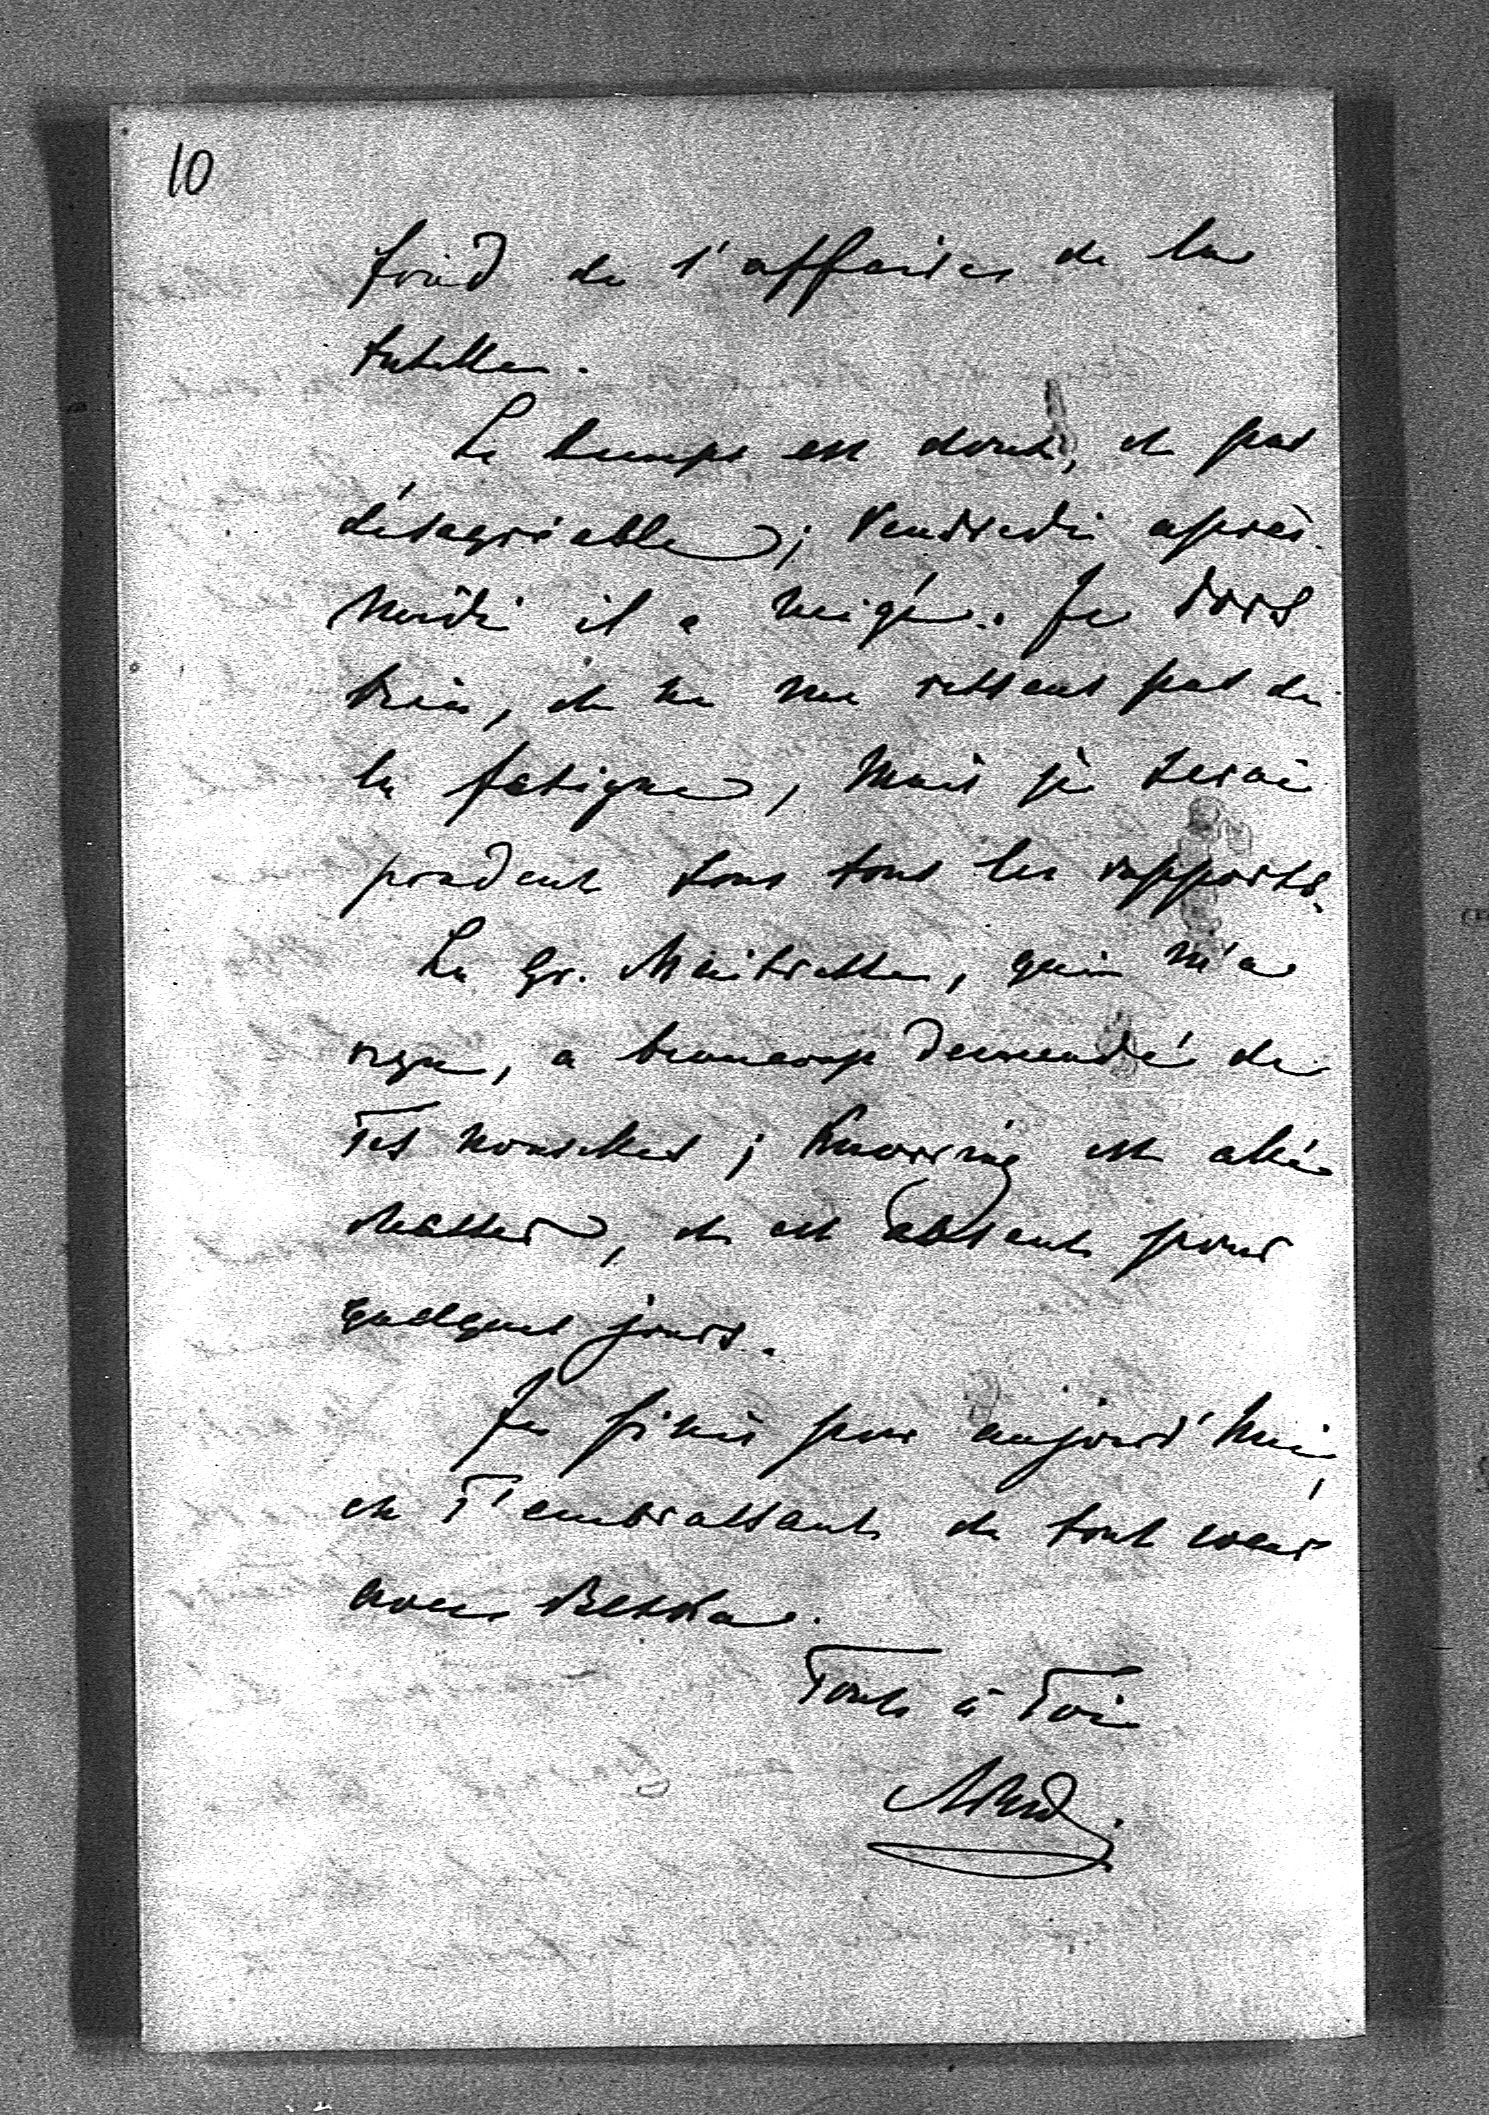 10
fond de l'affaires de la
tutelle.
Le temps est doux, et pas
désagréable; Vendredi après-
midi il a neigé. Je dors
bien, et ne me ressens pas de
la fatigue, mais je serai
prudent sous tous les rapports.
La Gr. Maitresse, qui m'a
reçu, a beaucoup demandé de
Tes nouvelles; Knorring est allé
chasser, et est absent pour
quelques jours.
Je finis pour aujourd'hui,
en T'embrassant de tout coeur
avec
Tout à Toi